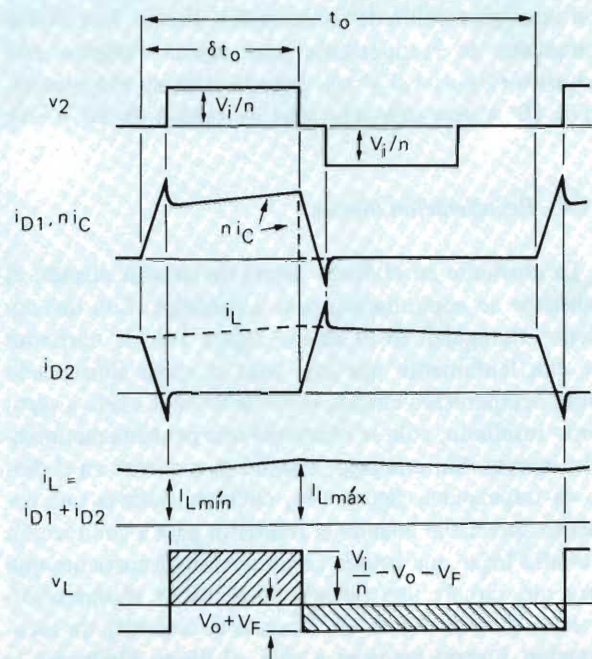 t₀
δt₀
v₂
Vᵢ/n
Vᵢ/n
i_D1, n i_C
n i_C
i_L
i_D2
i_L =
i_D1 + i_D2
I_Lmín
I_Lmáx
v_L
Vᵢ/n − V₀ − V_F
V₀ + V_F